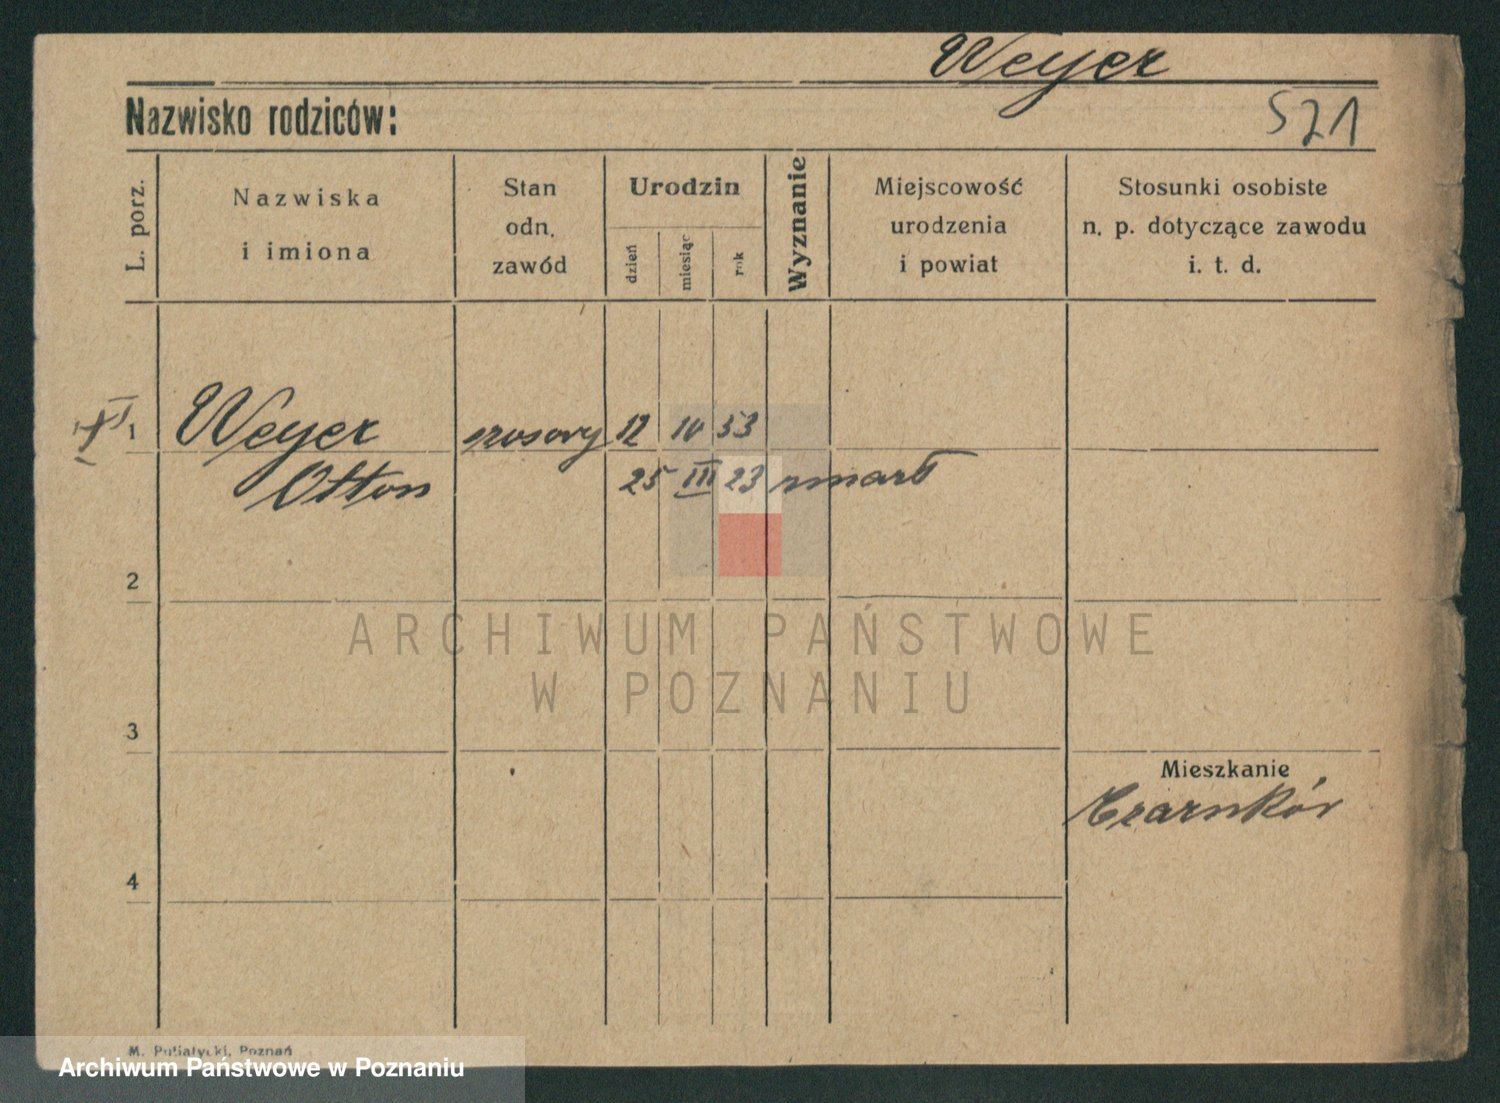 Weyer
Nazwisko rodziców:
521
L. porz.
Nazwiska
i imiona
Stan
odn.
zawód
Urodzin
dzień
miesiąc
rok
Wyznanie
Miejscowość
urodzenia
i powiat
Stosunki osobiste
n. p. dotyczące zawodu
i. t. d.
1 Weyer 12 10 53
Otton 25 III 23 zmarł
2
ARCHIWUM PAŃSTWOWE
W POZNANIU
3
Mieszkanie
Czarnków
4
M. Putiatycki, Poznań
Archiwum Państwowe w Poznaniu